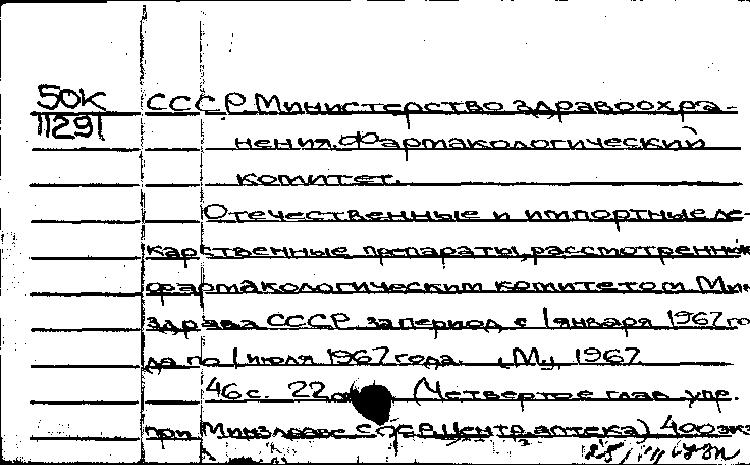 50К СССР Министерство здравоохра-
11291
нения. Фармакологический
комитет.
Отечественные и импортные ле-
карственные препараты, рассмотренные
фармакологическим комитетом Мин-
здрава СССР за период с 1 января 1967 го-
да по 1 июля 1967 года. М., 1967
46 с. 22 (Четвертое глав. упр.
при Минздраве СССР. Центр. аптека) 400 экз